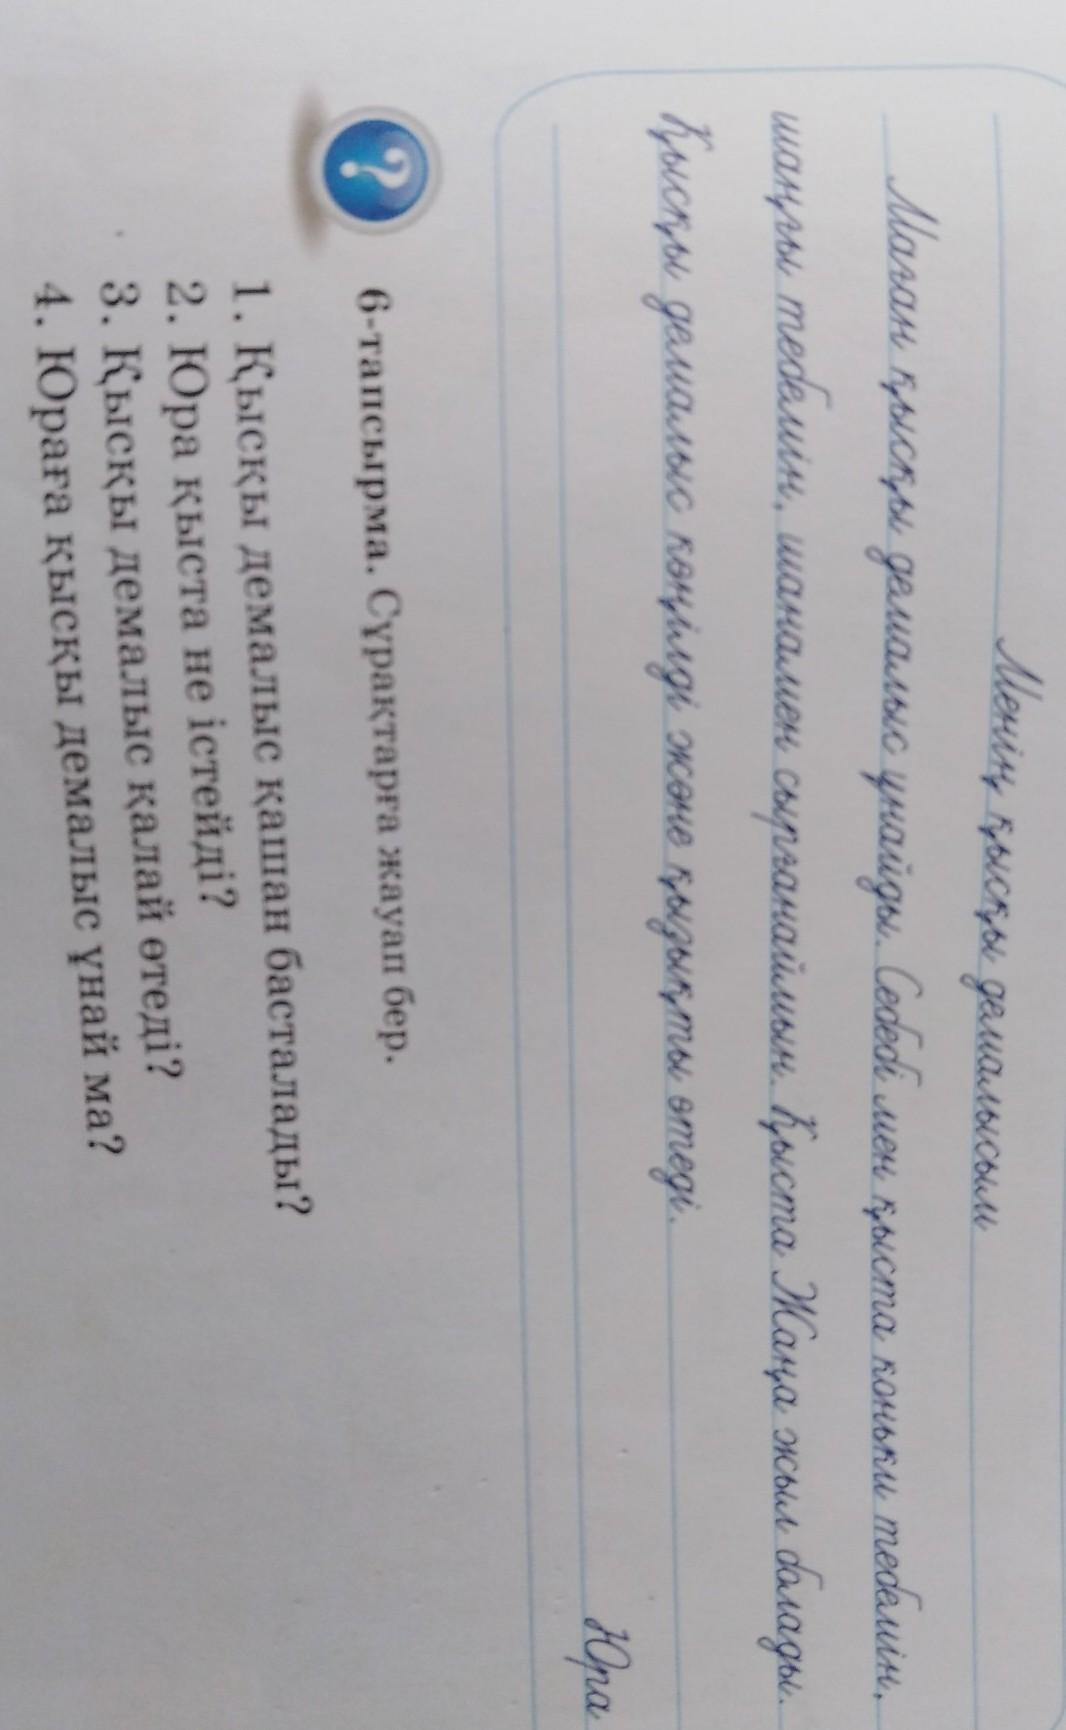 Менің қысқы демалысым
Маған қысқы демалыс ұнайды. Себебі мен қыста коньки тебемін,
шаңғы тебемін, шанамен сырғанаймын. Қыста Жаңа жыл болады.
Қысқы демалыс көңілді және қызықты өтеді.
Юра
?
6-тапсырма. Сұрақтарға жауап бер.
1. Қысқы демалыс қашан басталады?
2. Юра қыста не істейді?
3. Қысқы демалыс қалай өтеді?
4. Юраға қысқы демалыс ұнай ма?